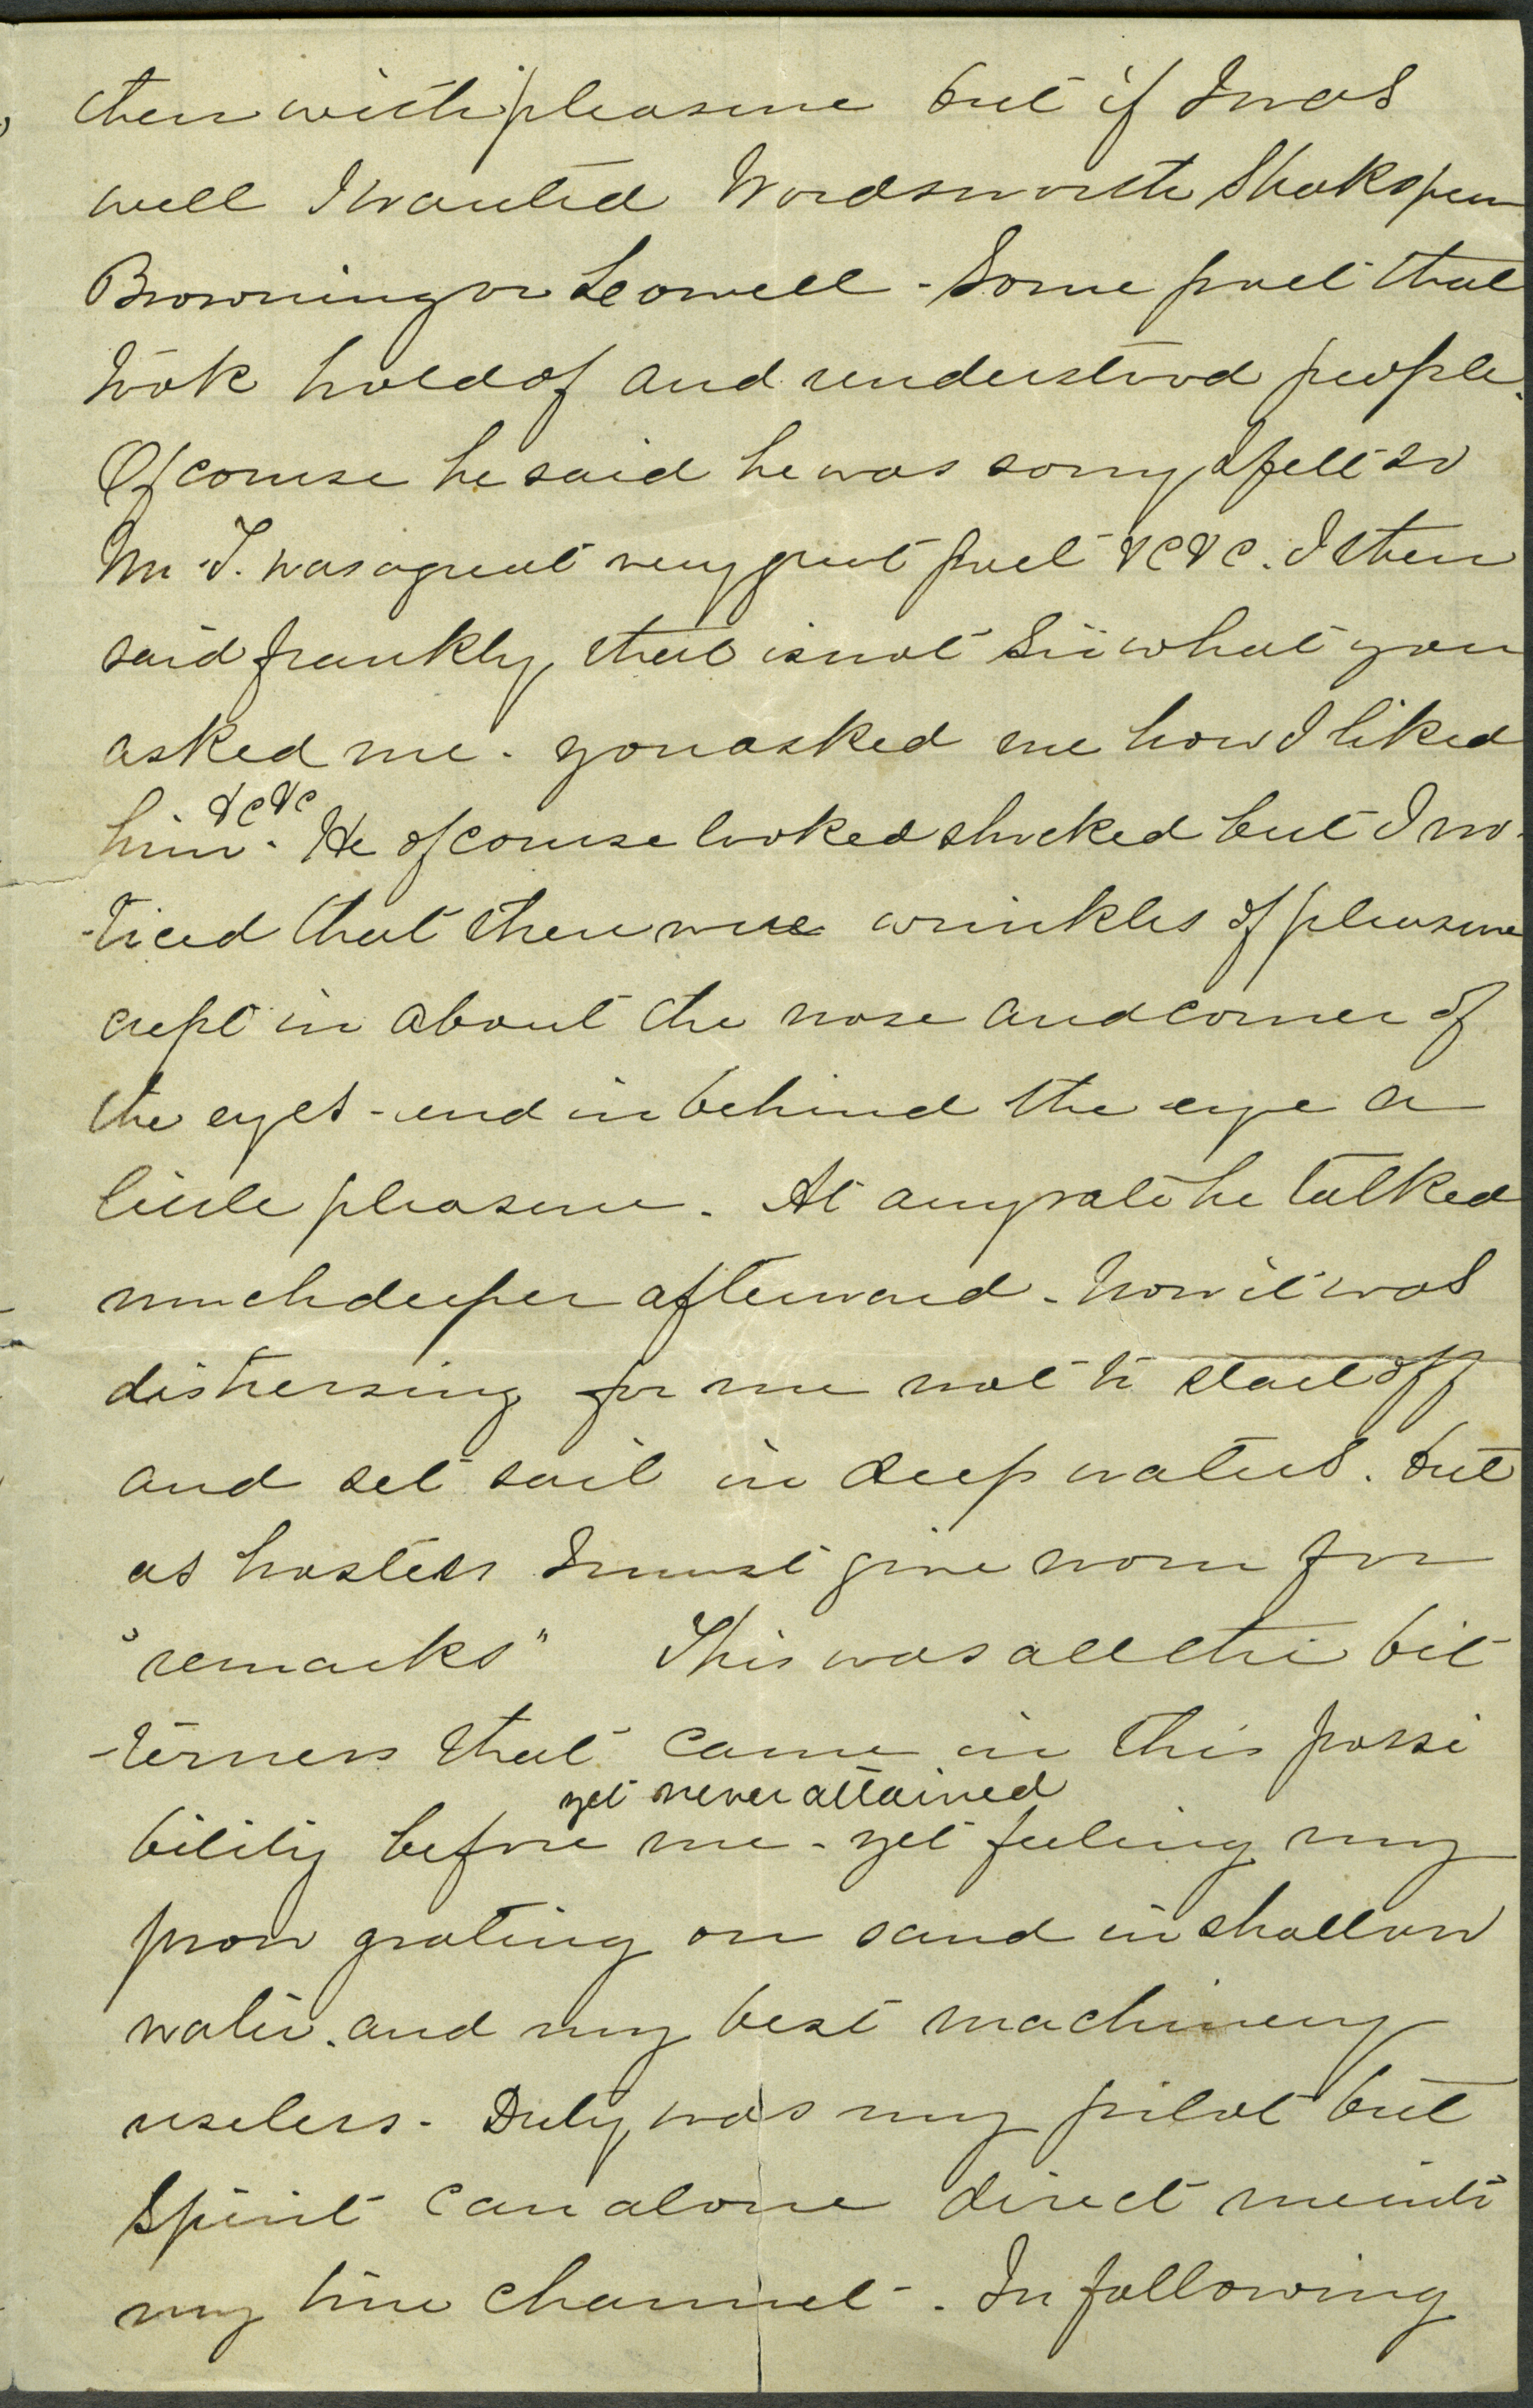 then with pleasure but if I was
well I wanted Wordsworth Shakspear
Browning or Leowell - Some poet that
took hold of and understood people.
Of course he said he was sorry I felt so
Mr T. was a great very great poet &c &c. I then
said frankly, that is not Sir what you
asked me - you asked me how I liked
&c &c
him. He of course looked shocked but I no-
-ticed that there were wrinkles of pleasure
crept in about the nose and corner of
the eyes - and in behind the eye a
little pleasure. At any rate he talked
much deeper afterward - Now it was
distressing for me not to start off
and set sail in deep waters. but
as hostess I must give room for
"remarks" This was all the bit
-terness that came in this possi
yet never attained
bility before me - yet feeling my
prow grating on sand in shallow
water. and my best machinery
useless - Duty was my pilot but
Spirit can alone direct me into
my true channel - In following